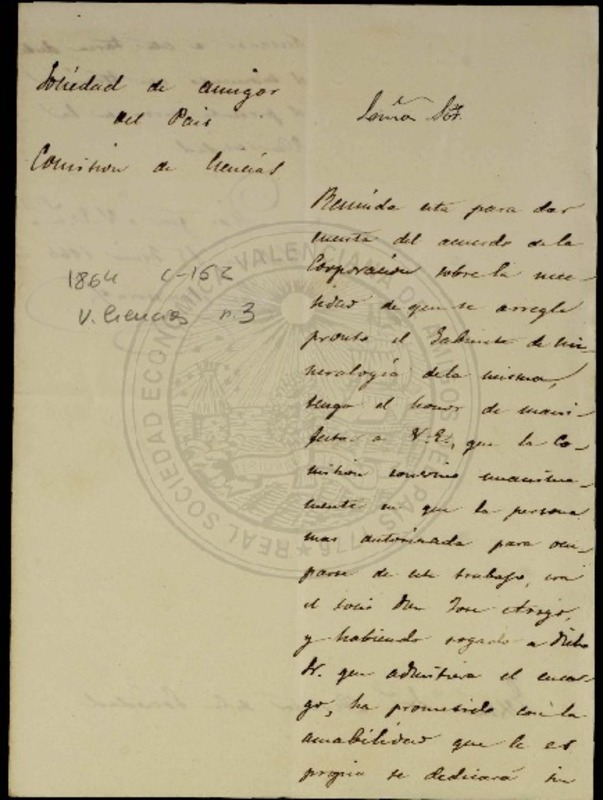 Sociedad de amigos
del Pais
Comision de Ciencias
1864 C-162
V. Ciencias n.3
Reunida esta para dar
cuenta del acuerdo de la
Corporacion sobre la nece-
sidad de que se arregle
pronto el Gabinete de Mi-
neralogía dela misma,
tengo el honor de mani-
festar a V.E., que la Co-
mision convino unanima-
mente en que la persona
mas autorizada para ocu-
parse de este trabajo, era
el socio Don Jose Arigo,
y habiendo rogado a dicho
Sr. que admitiera el encar-
go, ha prometido con la
amabilidad que le es
propia se dedicará sin
REAL SOCIEDAD ECONOMICA VALENCIANA DE AMIGOS DEL PAIS 1776